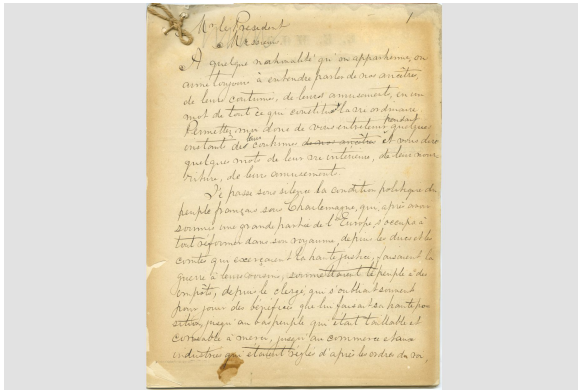 Mr le President
Messieurs
1
A quelque nationalité qu'on appartienne, on
aime toujours à entendre parler de nos ancêtres,
de leurs coutumes, de leurs amusements, en un
mot de tout ce qui constitue la vie ordinaire.
Permettez moi donc de vous entretenir pendant quelques
instants des leurs coutumes de nos ancêtres et vous dire
quelques mots de leur vie intérieure, de leur nour-
riture, de leurs amusements.
Je passe sous silence la condition politique du
peuple français sous Charlemagne, qui, après avoir
soumis une grande partie de l'Europe, s'occupa à
tout réformer dans son royaume, depuis les ducs et les
comtes qui exerçaient la haute justice, faisaient la
guerre à leurs voisins, soumettaient le peuple à des
impôts, depuis le clergé, qui s'oubliait souvent
pour jouir des bénéfices que lui faisait sa haute po-
sition, jusqu'au bas peuple qui était taillable et
corvéable à merci, jusqu'au commerce et aux
industries qui étaient réglés d'après les ordres du roi